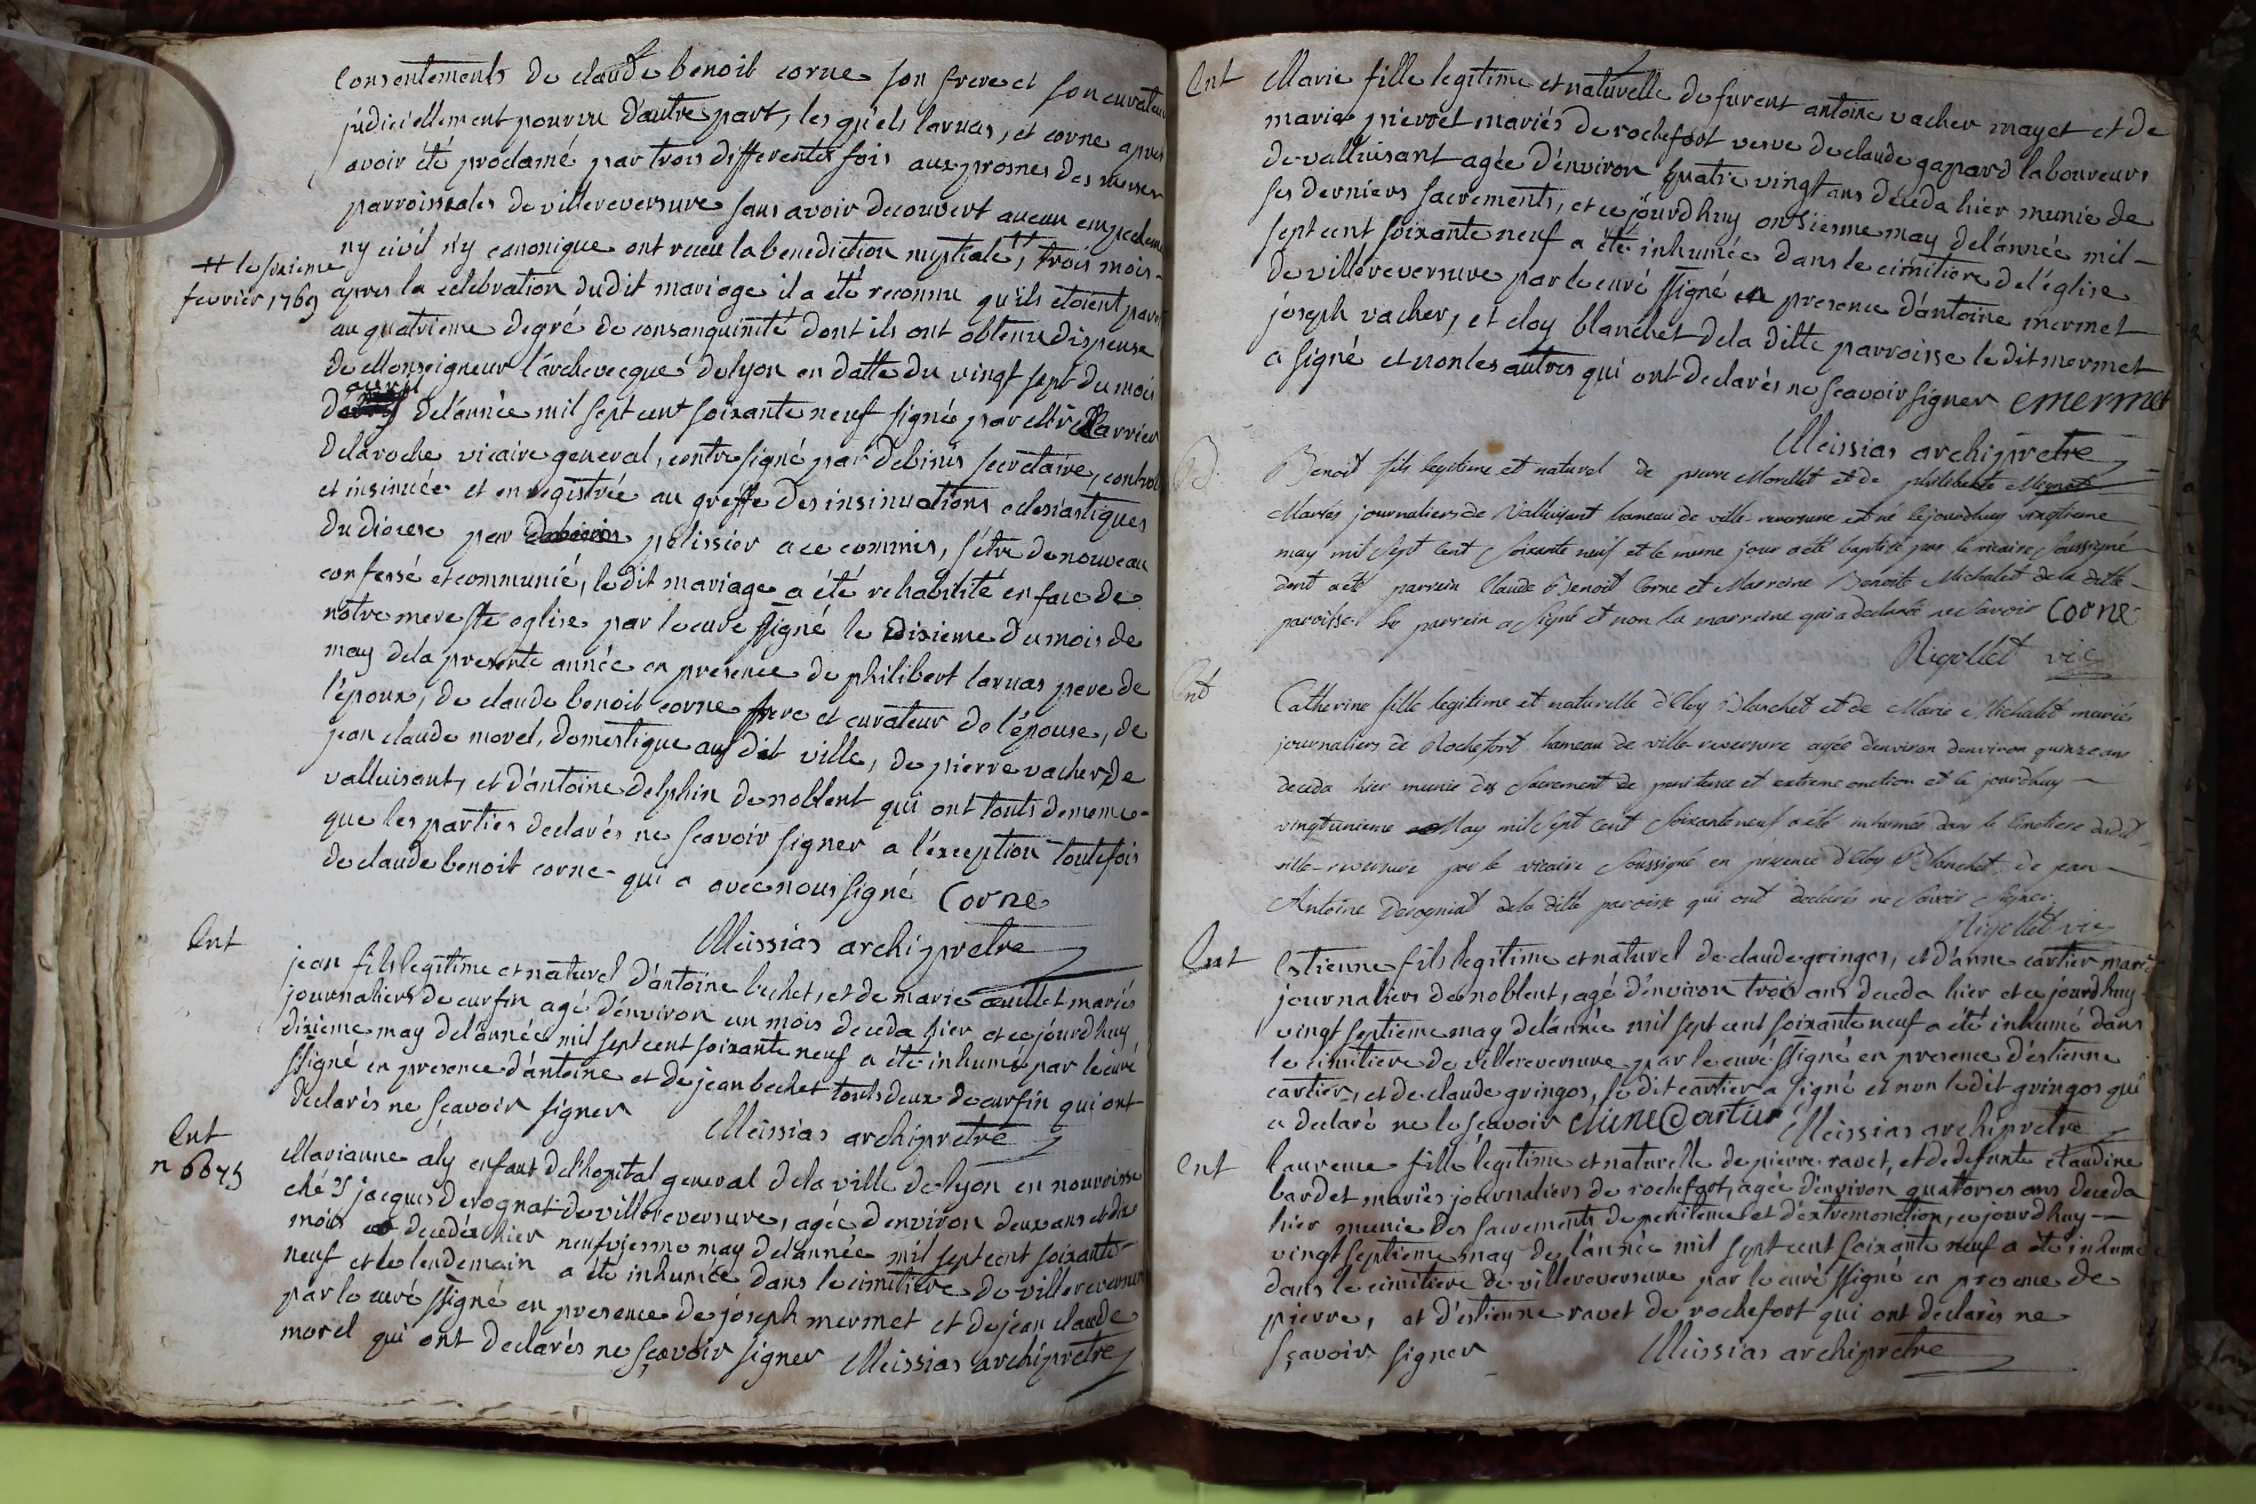 Consentements de claude benoit corne son frere et son curateur
judiciellement pourvu d'autre part, les quels larvas, et corne apres
avoir été proclamé par trois differentes fois aux prosnes des messes
parroissiales de villereversure sans avoir decouvert aucun empechem
ny civil n'y canonique ont receu la benediction nuptiale, trois mois
# le sixieme
fevrier 1769
apres la celebration dudit mariage il a été reconnu qu'ils étoient parents
au quatrieme degré de consanguinité dont ils ont obtenu dispense
de Monseigneur l'archevecque de lyon en datte du vingt sept du mois
avril
de l'année mil sept cent soixante neuf signé par Mr
delaroche vicaire general, contre signé par debinis secretaire, control
et insinuée et enregistrée au greffe des insinuations eclesiastiques
du diocese par pelissier a ce commis, s'être de nouveau
confessé et communié, le dit mariage a été rehabilité en face de
notre mere ste eglise par le curé ssigné le dixieme du mois de
may de la presente année en presence de philibert larvas pere de
l'époux, de claude benoit corne frere et curateur de l'épouse, de
jean claude morel, domestique au dit ville, de pierre vacher de
valluisant, et d'antoine delphin de noblent qui ont touts de meme
que les parties declarés ne sçavoir signer a l'exception toutefois
de claude benoit corne qui a avec nous signé Corne
Meissias archipretre
Ent
jean fils legitime et naturel d'antoine bechet, et de marie œuillet mariés
journaliers de curfin agé d'environ un mois deceda hier et ce jourd'huy
dixieme may de l'année mil sept cent soixante neuf a été inhumé par le curé
ssigné en presence d'antoine et de jean bechet touts deux de curfin qui ont
declarés ne sçavoir signer Meissias archipretre
Ent
n 6875
Marianne aly enfant de l'hopital general de la ville de lyon en nourrisse
ché jacques derognat de villereversure, agée d'environ deux ans et dix
mois decedée hier neufviesme may de l'année mil sept cent soixante
neuf et le lendemain a été inhumée dans le cimitiere de villereversure
par le curé ssigné en presence de joseph mermet et de jean claude
morel qui ont declarés ne sçavoir signer Meissias archipretre
Ent
Marie fille legitime et naturelle de furent antoine vacher mayet et de
marie pierret mariés de rochefort vesve de claude gapard laboureurs
de valluisant agée d'environ quatre vingt ans deceda hier munie de
ses derniers sacrements, et ce jourd'huy onsiesme may de l'année mil
sept cent soixante neuf a été inhumée dans le cimitiere de l'église
de villereversure par le curé ssigné en presence d'antoine mermet
joseph vacher, et eloy blanchet de la ditte parroisse le dit mermet
a signé et non les autres qui ont declarés ne sçavoir signer emermet
Meissias archipretre
Benoit fils legitime et naturel de pierre Morellet et de philiberte
Mariés journaliers de Valluisant hameau de ville-reversure est né cejourdhuy vingtieme
may mil sept cent soixante neuf et le meme jour a été baptisé par le vicaire soussigné
dont a été parrein Claude Benoit Corne et Marreine Benoite Michalet de la ditte
paroisse. Le parrein a signé et non la marreine qui a declaré ne sçavoir Corne
Rigollet vic
Ent
Catherine fille legitime et naturelle d'Eloy Blanchet et de Marie Michalet mariés
journaliers de Rochefort hameau de ville-reversure agée denviron denviron quinze ans
deceda hier munie des sacrement de penitence et extreme onction et ce jourdhuy
vingtunieme May mil sept cent soixante neuf a été inhumée dans le Cimetiere dudit
ville-reversure par le vicaire soussigné en presence d'Eloy Blanchet de jean
Antoine Derogniat dela ditte paroisse qui ont declarés ne savoir signer.
Rigollet vic
Ent
Estienne fils legitime et naturel de claude gringos, et d'anne cartier mariés
journaliers de noblent, agé d'environ trois ans deceda hier et ce jourdhuy
vingt septieme may de l'année mil sept cent soixante neuf a été inhumé dans
le cimitiere de villereversure par le curé ssigné en presence d'estienne
cartier, et de claude gringos, le dit cartier a signé et non le dit gringos qui
a declaré ne le sçavoir etiene Cartier Meissias archipretre
Ent
Laurence fille legitime et naturelle de pierre ravet, et de defunte claudine
bardet mariés journaliers de rochefort, agée d'environ quatorses ans deceda
hier munie des sacrements de penitence et d'extremonction, ce jourdhuy
vingt septieme may de l'année mil sept cent soixante neuf a été inhumé
dans le cimitiere de villereversure par le curé ssigné en presence de
pierre, et d'estienne ravet de rochefort qui ont declarés ne
sçavoir signer Meissias archipretre